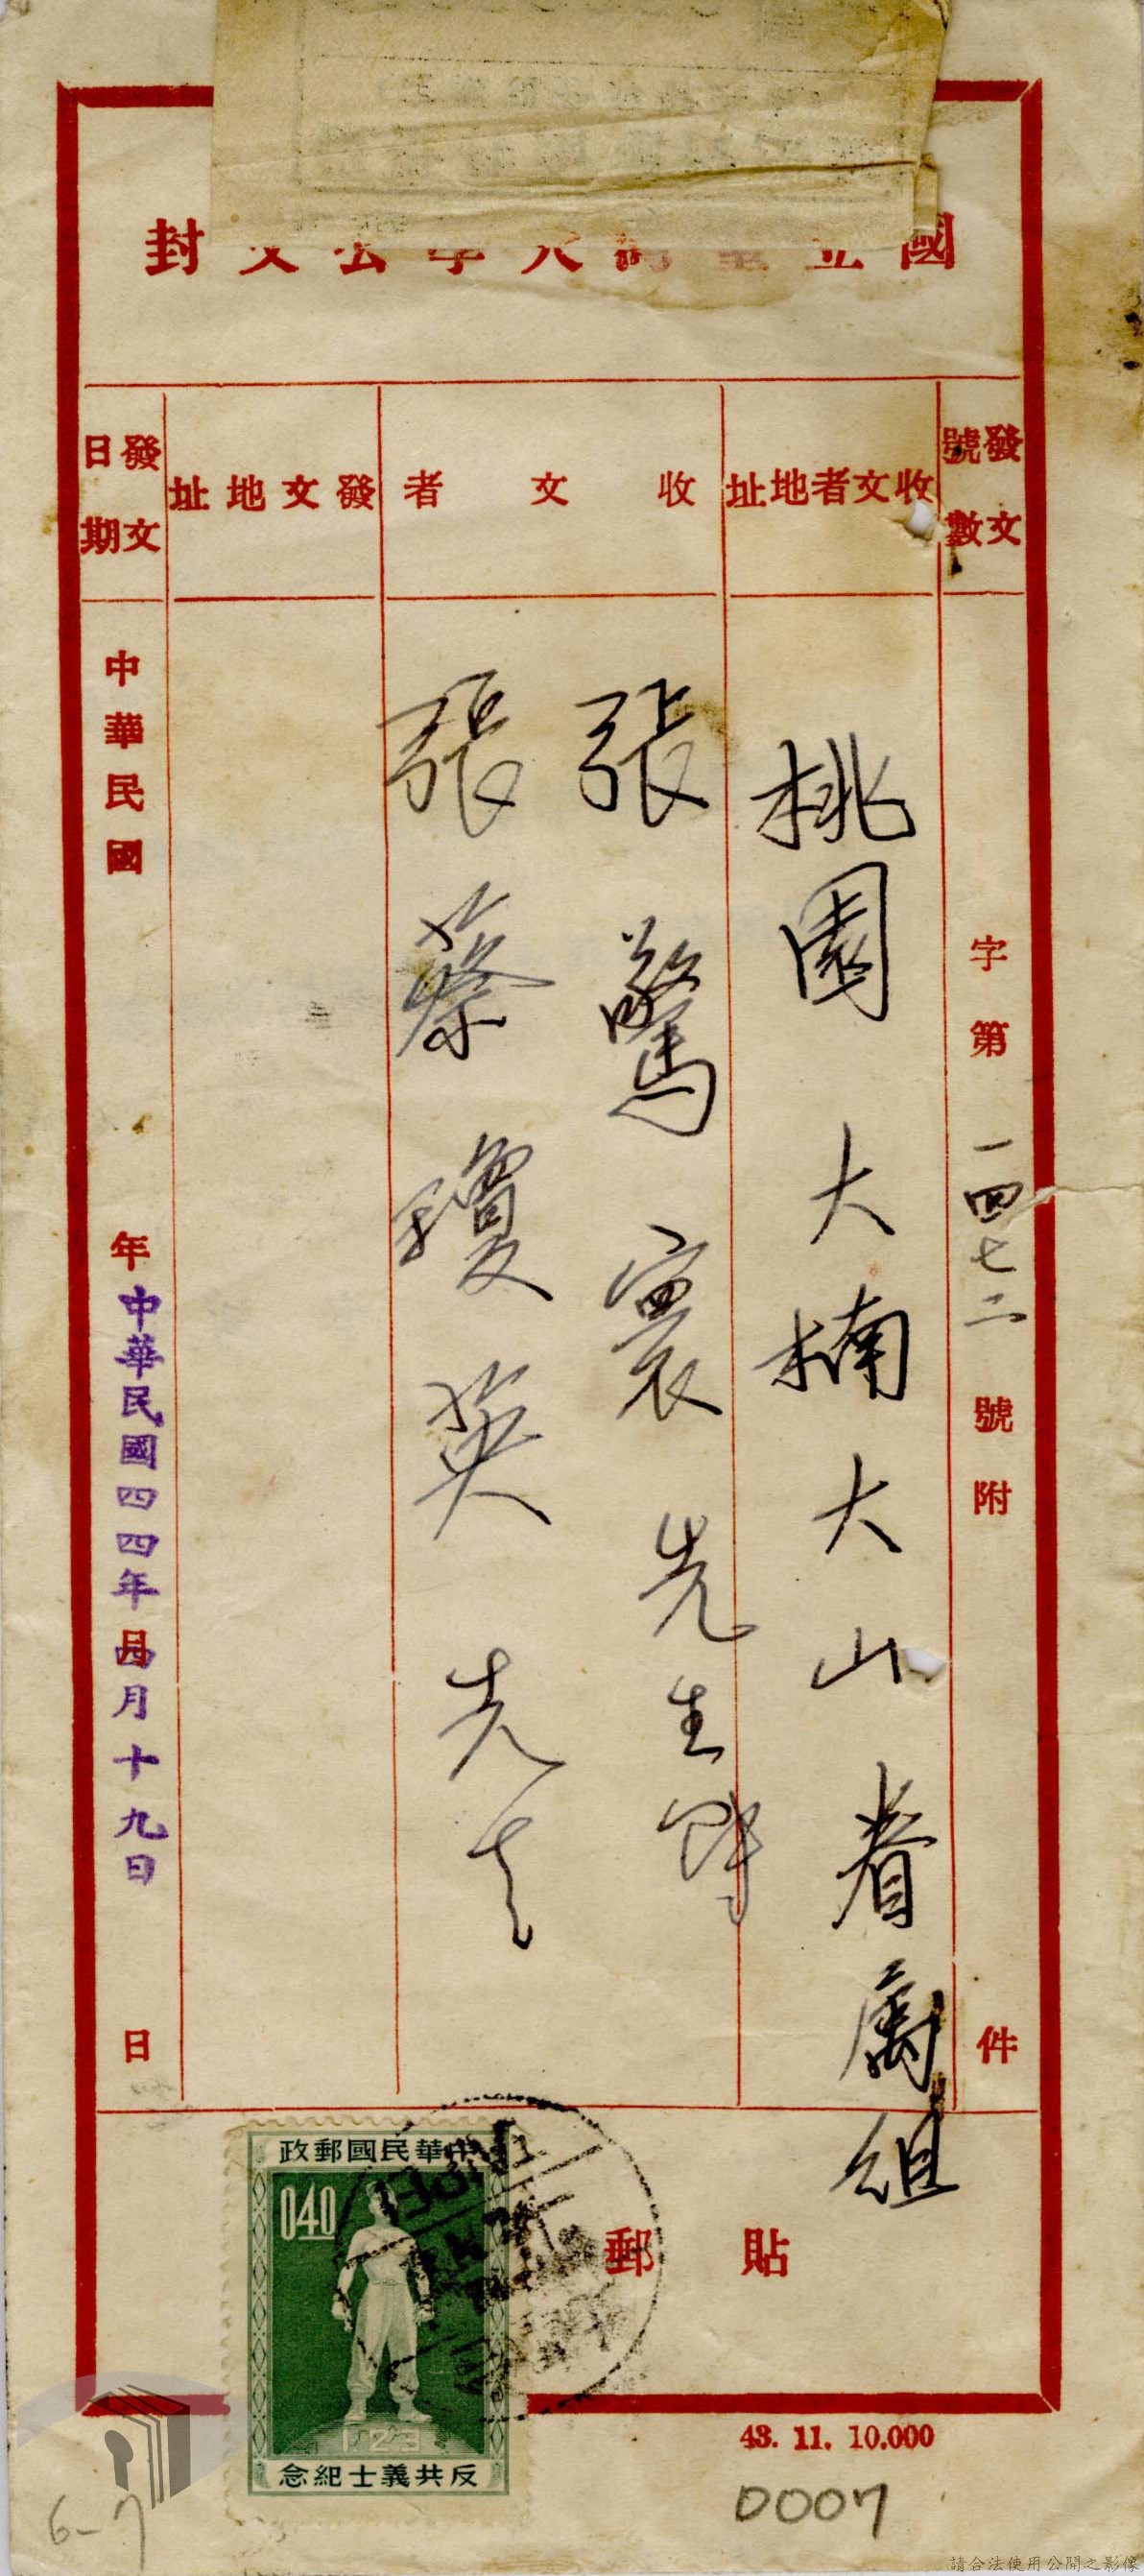 國立臺灣大學公文封
發文號數
收文者地址
收文者
發文地址
發文日期
字第一四七二號附件
桃園大楠大山眷屬組
張鶩寰先生
張蔡瓊英先生
中華民國年月日
中華民國四四年四月十九日
貼郵
中華民國郵政
040
1.23
反共義士紀念
43. 11. 10.000
0007
6-7
請合法使用公開之影像